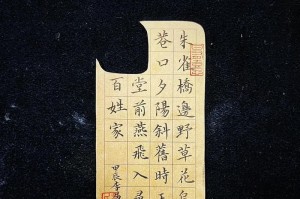 朱雀橋邊野草花
巷口夕陽斜舊時王
堂前燕飛入尋
百姓家
甲辰